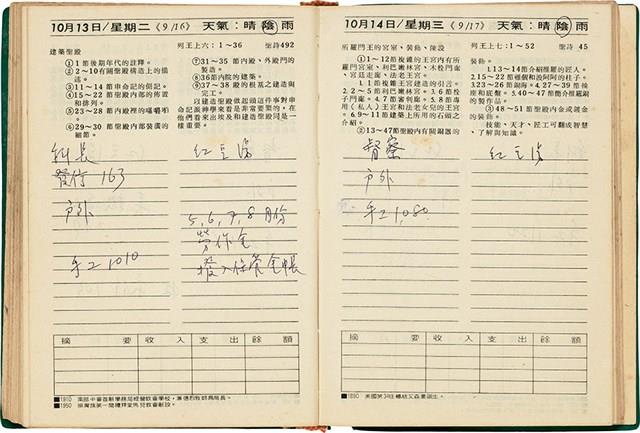 10月13日/星期二《9/16》 天氣：晴陰雨
列王上六：1～36 聖詩492
建築聖殿
①1節後期年代的註釋。
②2～10有關聖殿構造上的描述。
③11～14節申命記的倒記。
④15～22節聖殿內部的佈置和排列。
⑤23～28節內殿裡的嚕嘟啪。
⑥29～30節聖殿內部裝潢的細節。
⑦31～35節內殿、外殿門的製造。
⑧36節內院的建築。
⑨37～38殿的根基之建造與完工。
以建造聖殿做起頭這件事對申命記派神學來看是非常要緊的，在他們看來出埃及和建造聖殿同是一樣重要。
科長
發行163
戶外
手工1010
紅豆湯
5,6,7,8月份
勞作金
撥入保管金帳
摘要 收入 支出 餘額
10月14日/星期三《9/17》 天氣：晴陰雨
列王上七：1～52 聖詩45
所羅門王的宮室、裝飾、陳設
①1～12節複雜的王宮內有所羅門的宮室、利巴嫩林宮、木栓門廊、宮廷走廊、法老王宮。
1.1節複雜王宮建造的引言。
2.2～5利巴嫩林宮。3.6節柱子門廊。4.7節審判廊。5.8節專用（私人）王宮和法老女兒的王宮。6.9～11節建築上所用的石頭之介紹。
②13～47節聖殿內有關銅器的裝飾。
1.13～14節介紹鑄銅的匠人。
2.15～22節雅斤和波阿斯的柱子。
3.23～26節銅海。4.27～39節推座和浴盤。5.40～47節簡介紹鑄銅的製作品。
③48～51節聖殿內金或鍍金的裝飾。
技能、天才、匠工可翻成智慧、了解與知識。
督察
戶外
手工1,080
紅豆湯
摘要 收入 支出 餘額